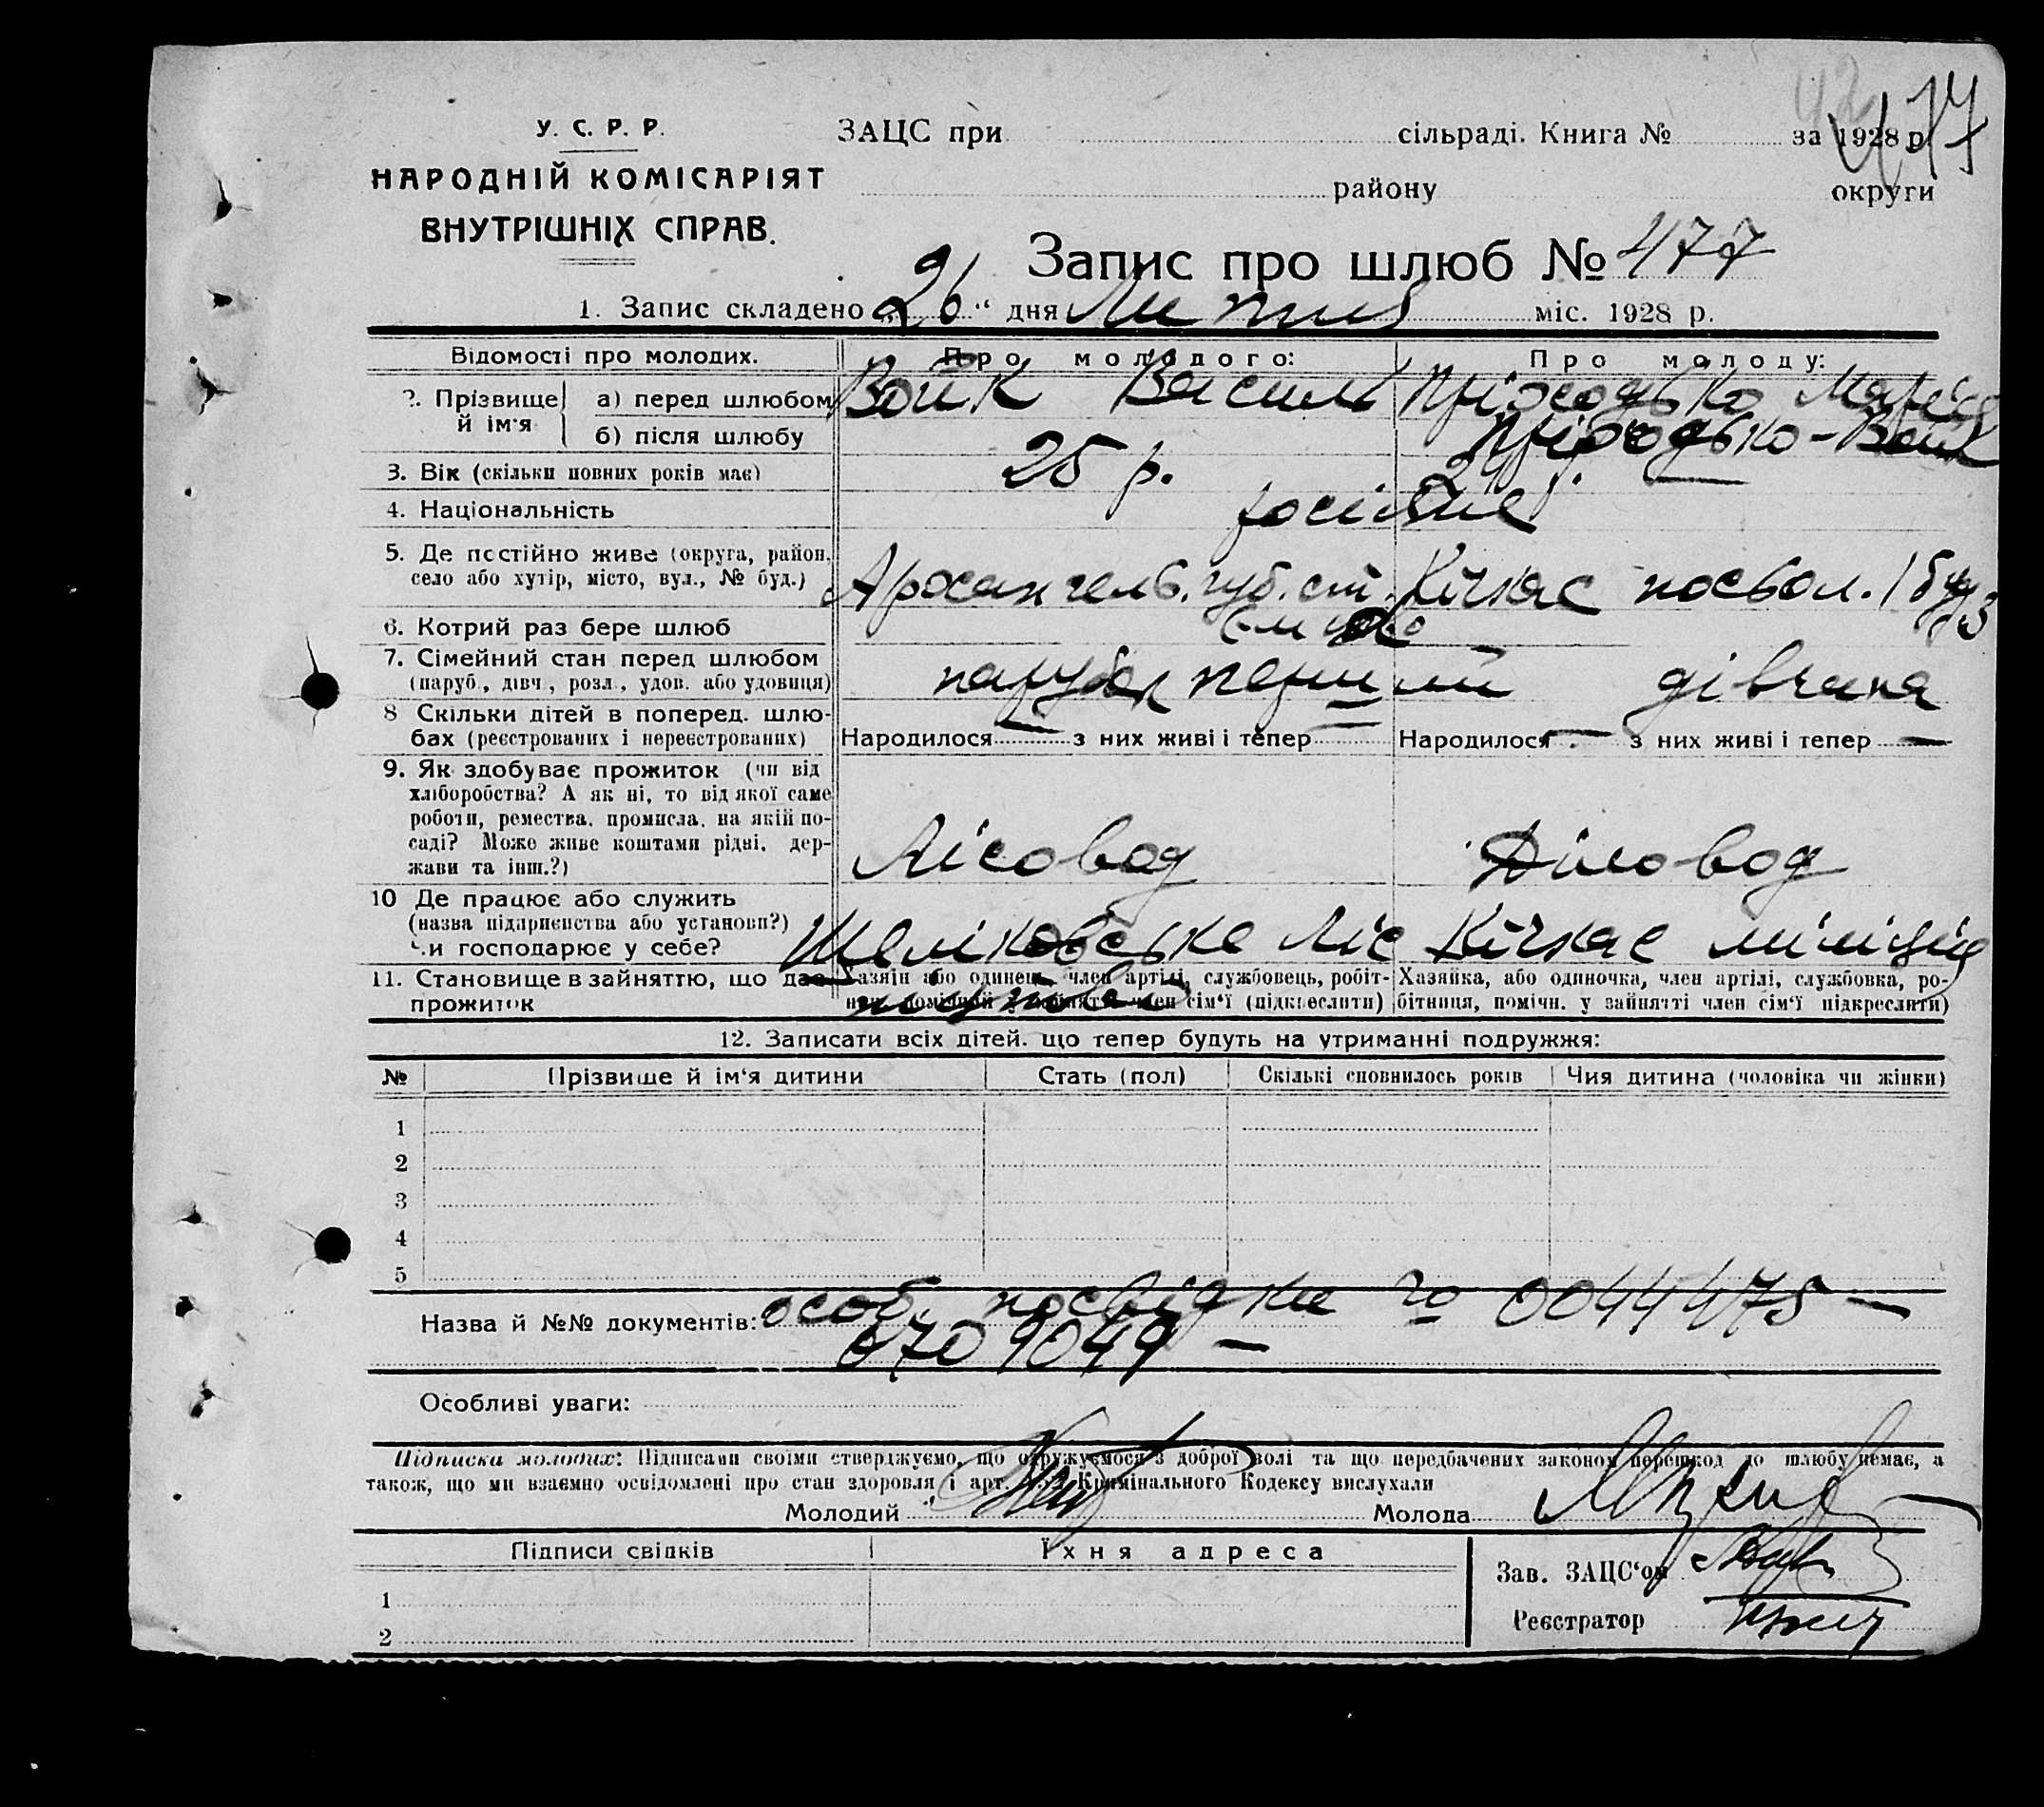 У. С. Р. Р.
НАРОДНІЙ КОМІСАРІЯТ
ВНУТРІШНІХ СПРАВ.
ЗАЦС при сільраді. Книга № за 1928 р.
42
477
району округи
Запис про шлюб № 477
1. Запис складено „26“ дня Липня міс. 1928 р.
Відомості про молодих. Про молодого: Про молоду:
2. Прізвище й ім'я
а) перед шлюбом Воик Василь Пріходько Марія
б) після шлюбу Пріходько-Воик
3. Вік (скільки повних років має) 25 р.
4. Національність росіяне
5. Де постійно живе (округа, район, село або хутір, місто, вул., № буд.) Архангель. губ. ст. Кічкас посьол. 1 буд
6. Котрий раз бере шлюб
7. Сімейний стан перед шлюбом
(паруб., дівч., розл., удов. або удовиця) парубок перший дівчина
8 Скільки дітей в поперед. шлюбах (реєстрованих і нереєстрованих)
Народилося — з них живі і тепер — Народилося — з них живі і тепер —
9. Як здобуває прожиток (чи від
хліборобства? А як ні, то від якої саме
роботи, ремества, промисла, на якій по-
саді? Може живе коштами рідні, дер-
жави та інш.?) Лісовод Діловод
10 Де працює або служить
(назва підприємства або установи?)
Чи господарює у себе? Кічкас міліція
11. Становище в зайняттю, що дає прожиток
Хазяїн або одинець, член артілі, службовець, робіт-
ник, помічний у зайнятті член сім'ї (підкреслити)
Хазяйка, або одиночка, член артілі, службовка, ро-
бітниця, помічн. у зайнятті член сім'ї підкреслити)
12. Записати всіх дітей, що тепер будуть на утриманні подружжя:
№ Прізвище й ім'я дитини Стать (пол) Скількі сповнилось років Чия дитина (чоловіка чи жінки)
1
2
3
4
5
Назва й №№ документів: особ. посвідки № 0044475 —
6709049 —
Особливі уваги:
Підписки молодих: Підписами своїми стверджуємо, що одружуємося з доброї волі та що передбачених законом перешкод до шлюбу немає, а
також, що ми взаємно освідомлені про стан здоровля і арт. Кримінального Кодексу вислухали
Молодий Молода
Підписи свідків Їхня адреса
1
2
Зав. ЗАЦС'ом
Реєстратор